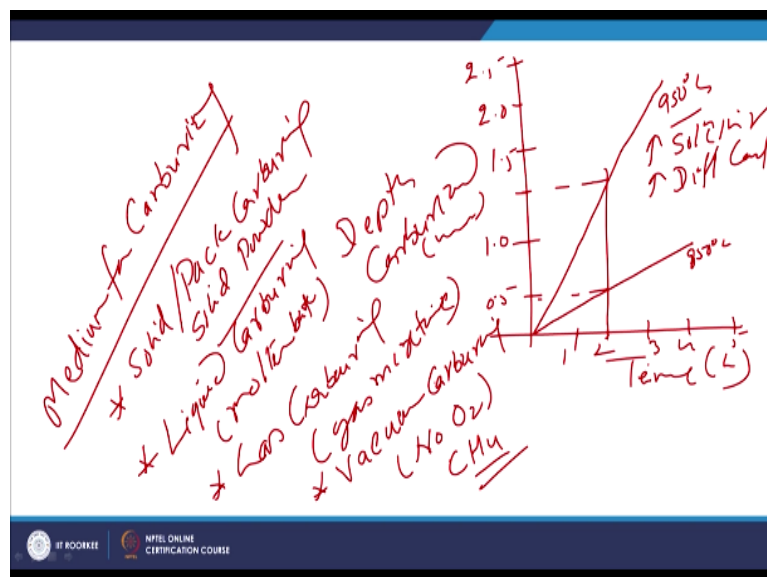 Medium for Carburizing
* Solid/Pack Carburing
Solid Powder
* Liquid Carburing
(molten bate)
* Gas Carburing
(gas mixture)
* Vacuum Carburing
(No O2)
CH4
Depth
(mm)
2.5
2.0
1.5
1.0
0.5
1
2
3
4
5
Time (h)
950°C
↑ Diff
850°C
IIT ROORKEE
NPTEL ONLINE
CERTIFICATION COURSE